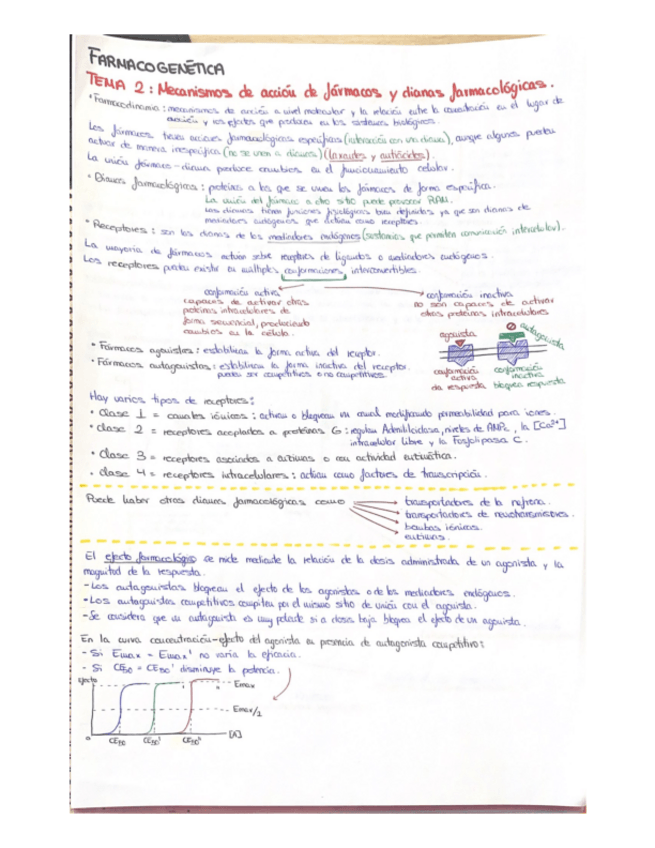 FARMACOGENÉTICA
TEMA 2: Mecanismos de acción de fármacos y dianas farmacológicas.
• Farmacodinamia: mecanismos de acción a nivel molecular y la relación entre la concentración en el lugar de
acción y los efectos que producen en los sistemas biológicos.
Los fármacos tienen acciones farmacológicas específicas (interacción con una diana), aunque algunos pueden
actuar de manera inespecífica (no se unen a dianas) (laxantes y antiácidos).
La unión fármaco-diana produce cambios en el funcionamiento celular.
• Dianas farmacológicas: proteínas a las que se unen los fármacos de forma específica.
La unión del fármaco a otro sitio puede provocar RAM.
Las dianas tienen funciones fisiológicas bien definidas ya que son dianas de
mediadores endógenos que actúan como receptores.
• Receptores: son las dianas de los mediadores endógenos (sustancias que permiten comunicación intercelular).
La mayoría de fármacos actúan sobre receptores de ligandos o mediadores endógenos.
Los receptores pueden existir en múltiples conformaciones interconvertibles.
conformación activa
capaces de activar otras
proteínas intracelulares de
forma secuencial, produciendo
cambios en la célula.
conformación inactiva
no son capaces de activar
otras proteínas intracelulares
• Fármacos agonistas: estabilizan la forma activa del receptor.
• Fármacos antagonistas: estabilizan la forma inactiva del receptor.
pueden ser competitivos o no competitivos.
agonista
antagonista
conformación
activa
da respuesta
conformación
inactiva
bloquea respuesta
Hay varios tipos de receptores:
• Clase 1 = canales iónicos: activan o bloquean un canal modificando permeabilidad para iones.
• Clase 2 = receptores acoplados a proteínas G: regulan Adenilciclasa, niveles de AMPc, la [Ca²⁺]
intracelular libre y la Fosfolipasa C.
• Clase 3 = receptores asociados a enzimas o con actividad enzimática.
• Clase 4 = receptores intracelulares: actúan como factores de transcripción.
Puede haber otras dianas farmacológicas como
transportadores de la nefrona.
transportadores de neurotransmisores.
bombas iónicas.
enzimas.
El efecto farmacológico se mide mediante la relación de la dosis administrada de un agonista y la
magnitud de la respuesta.
- Los antagonistas bloquean el efecto de los agonistas o de los mediadores endógenos.
- Los antagonistas competitivos compiten por el mismo sitio de unión con el agonista.
- Se considera que un antagonista es muy potente si a dosis baja bloquea el efecto de un agonista.
En la curva concentración-efecto del agonista en presencia de antagonista competitivo:
- Si Emax = Emax' no varía la eficacia.
- Si CE50 ≠ CE50' disminuye la potencia.
Efecto
Emax
Emax/2
0
CE50
CE50'
CE50''
[A]